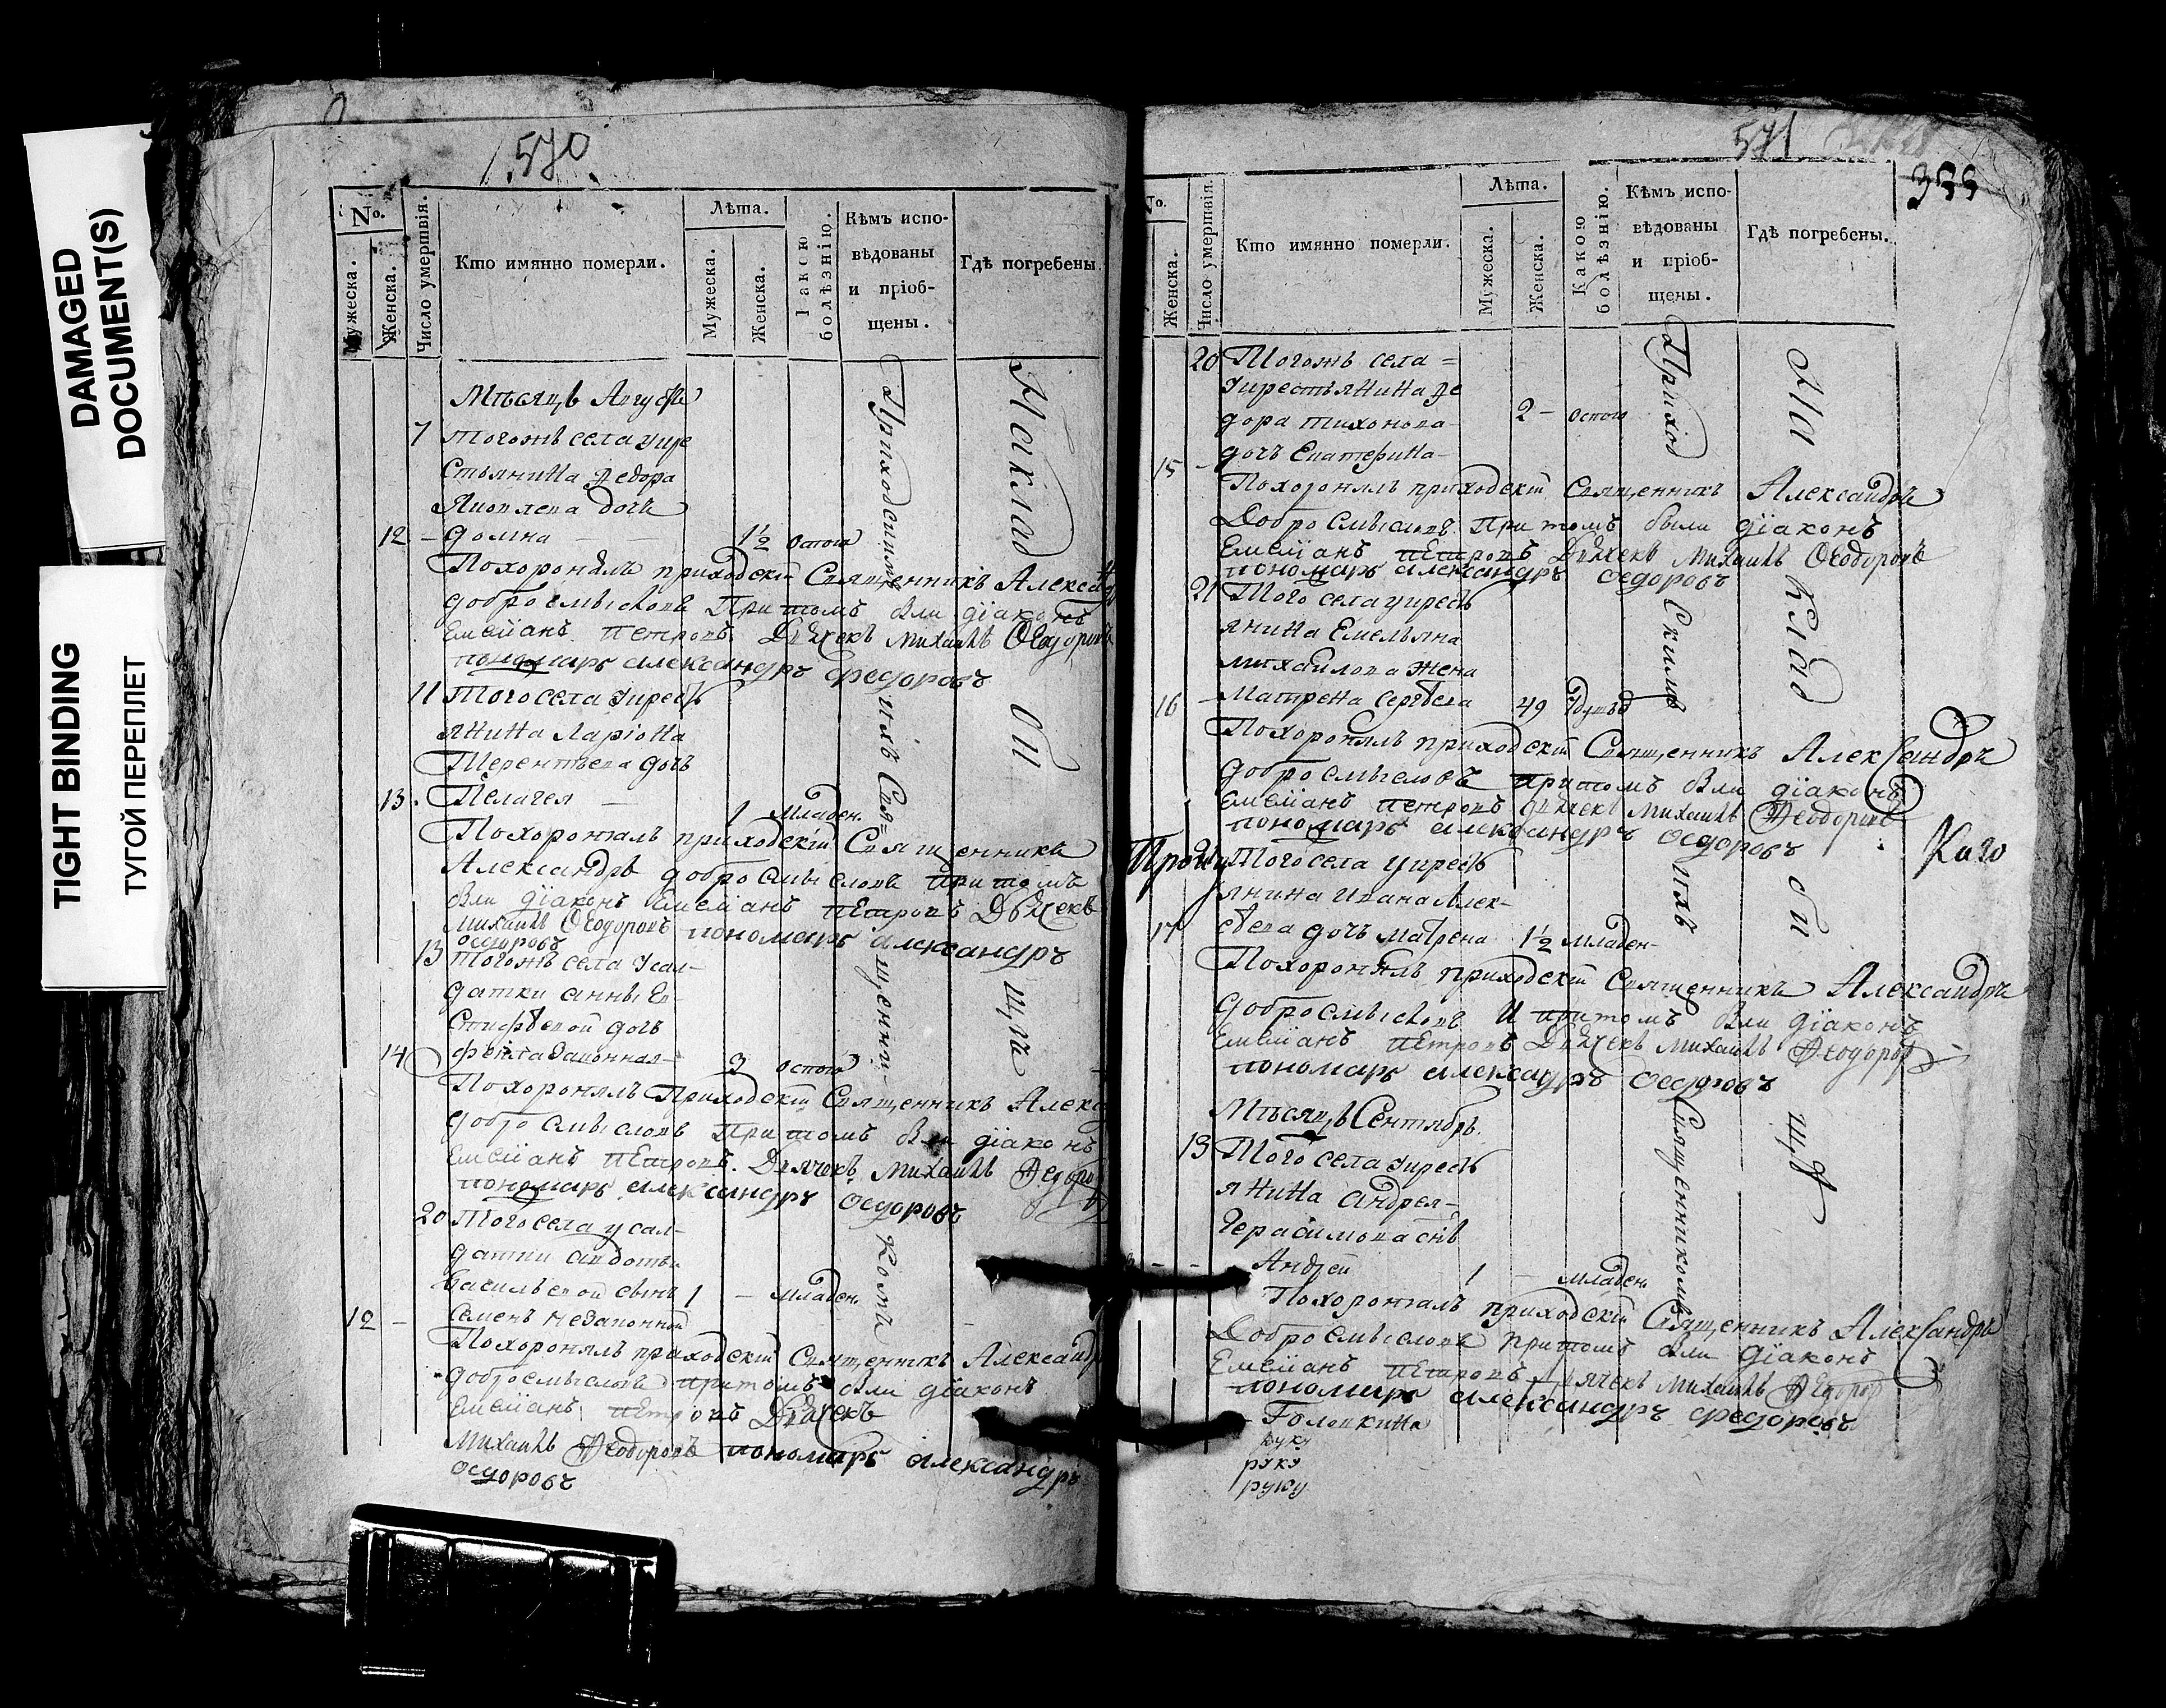 DAMAGED
DOCUMENT(S)
TIGHT BINDING
ТУГОЙ ПЕРЕПЛЕТ
570
№.
Мужеска.
Женска.
Число умертвія.
Кто имянно померли.
Лѣта.
Мужеска.
Женска.
Какою
болѣзнію.
Кѣмъ испо-
вѣдованы
и пріоб-
щены.
Гдѣ погребены
Мѣсяцъ Августъ
7 тогожъ села у кре
стьянина Федора
Яковлева дочь
12 - домна 1½ оспою
Похоронялъ приходскій Священникъ Александръ
добросмысловъ При томъ были діаконъ
Емеліанъ Петровъ Дьячекъ Михаилъ Ѳеодоровъ
пономарь александръ федоровъ
11 Того села у кресть
янина Ларіона
Терентьева дочь
13. Пелагея 1 Младен.
Похоронялъ приходскій Священникъ
Александръ добросмысловъ При томъ
были діаконъ Емеліанъ Петровъ Дьячекъ
Михаилъ Ѳеодоровъ пономарь александръ
ѳедоровъ
13 Тогожъ села У сал-
датки анны Ев-
стифѣевой дочь
14 незаконная 3 оспою
Похоронялъ Приходскій Священникъ Алекса
добросмысловъ При томъ были діаконъ
Емеліанъ Петровъ. Дьячекъ Михаилъ Ѳедоров
пономарь александръ ѳедоровъ
20 Того села у сал-
датки авдотьи
Васильевой сынъ 1 - младен.
12 - Семенъ незаконной
Похоронялъ приходскій Священникъ Александръ
добросмысловъ При томъ были діаконъ
Емеліанъ Петровъ Дьячекъ
Михаилъ Ѳеодоровъ пономарь александръ
ѳедоровъ
Приходскимъ
ихъ Свя=
щенни-
комъ
На клад
би
щѣ
571
355
№.
Женска.
Число умертвія.
Кто имянно померли.
Лѣта.
Мужеска.
Женска.
Какою
болѣзнію.
Кѣмъ испо-
вѣдованы
и пріоб-
щены.
Гдѣ погребены.
20 Тогожъ села =
у крестьянина Фе
дора тихонова 2 - оспою
15 - дочь Екатерина
Похоронялъ приходскій Священникъ Александръ
Добросмысловъ При томъ были діаконъ
Емеліанъ Петровъ Дьячекъ Михаилъ Ѳеодоровъ
пономарь александръ ѳедоровъ
21 Того села у кресть
янина Емельяна
михайлова жена
16 - Матрена Сергѣева 49
Похоронялъ приходскій Священникъ Александръ
добросмысловъ При томъ были діаконъ
Емеліанъ Петровъ дьячекъ Михаилъ Ѳеодоровъ
пономарь александръ ѳедоровъ
Того села у кресть
янина Ивана Алек-
17 сѣева дочь Матрена 1½ младен-
Похоронялъ приходскій Священникъ Александръ
добросмысловъ И притомъ были діаконъ
Емеліанъ Петровъ Дьячекъ Михаилъ Ѳеодоров
пономарь александръ ѳедоровъ
Мѣсяцъ Сентябрь.
13 Того села у кресть
янина андрея
Герасимова сынъ
Андрей 1 младен.
Похоронялъ приходскій Священникъ Александръ
Добросмысловъ При томъ были діаконъ
Емеліанъ Петровъ Дьячекъ Михаилъ Ѳедоров
пономарь александръ федоровъ
Головкина
руку
руку
руку
Приход
Скимъ
ихъ
Священникомъ
На
клад
би
щѣ